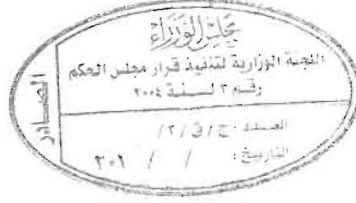 مجلس الوزراء
اللجنة الوزارية لتنفيذ قرار مجلس الحكم
رقم ٣ لسنة ٢٠٠٤
العدد : ج / ق / ٢ /
التاريخ : / / ٢٠١
الصادر